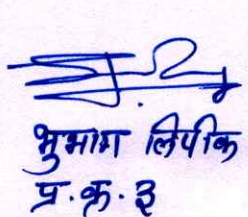 भुमाग लिपीक
प्र.क्र.३